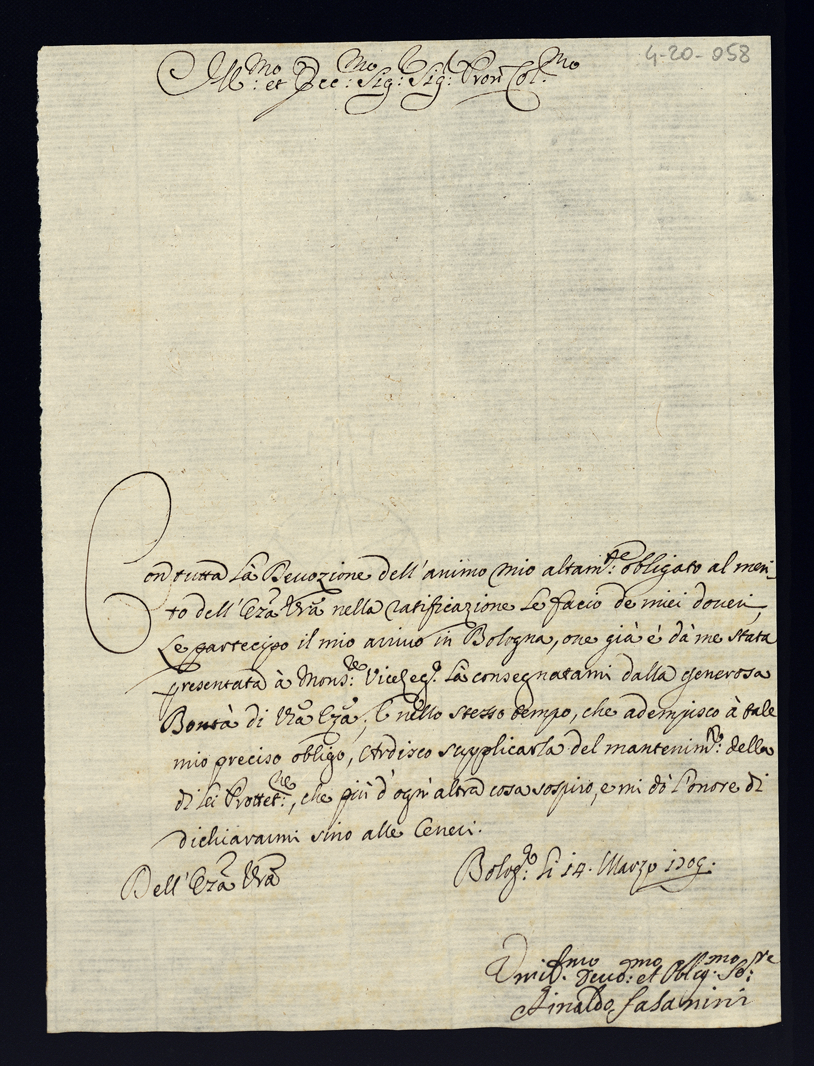 4-20-058
Ill:mo et Ecc:mo Sig: Sig: Pron Col:mo
Con tutta Là Devozione dell'animo mio altam:te obligato al meri-
to dell'Ecza Vra nella ratificazione Le facio de miei doveri,
Le partecipo il mio arrivo in Bologna, ove già é dà me stata
presentata à Mons:re Viceleg:o Là consegnatami dalla generosa
Bontà di Vra Ecza, E nello stesso tempo, che adempisco à tale
mio preciso obligo, Ardisco supplicarla del mantenim:to della
di Lei Prottet:ne, che più d'ogn'altra cosa sospiro, e mi dò L'onore di
dichiararmi sino alle Ceneri.
Dell'Ecza Vra
Bolog:a Li 14. Marzo 1709.
Umil:mo Devo:mo et Oblig:mo Se:re
Rinaldo Fasanini